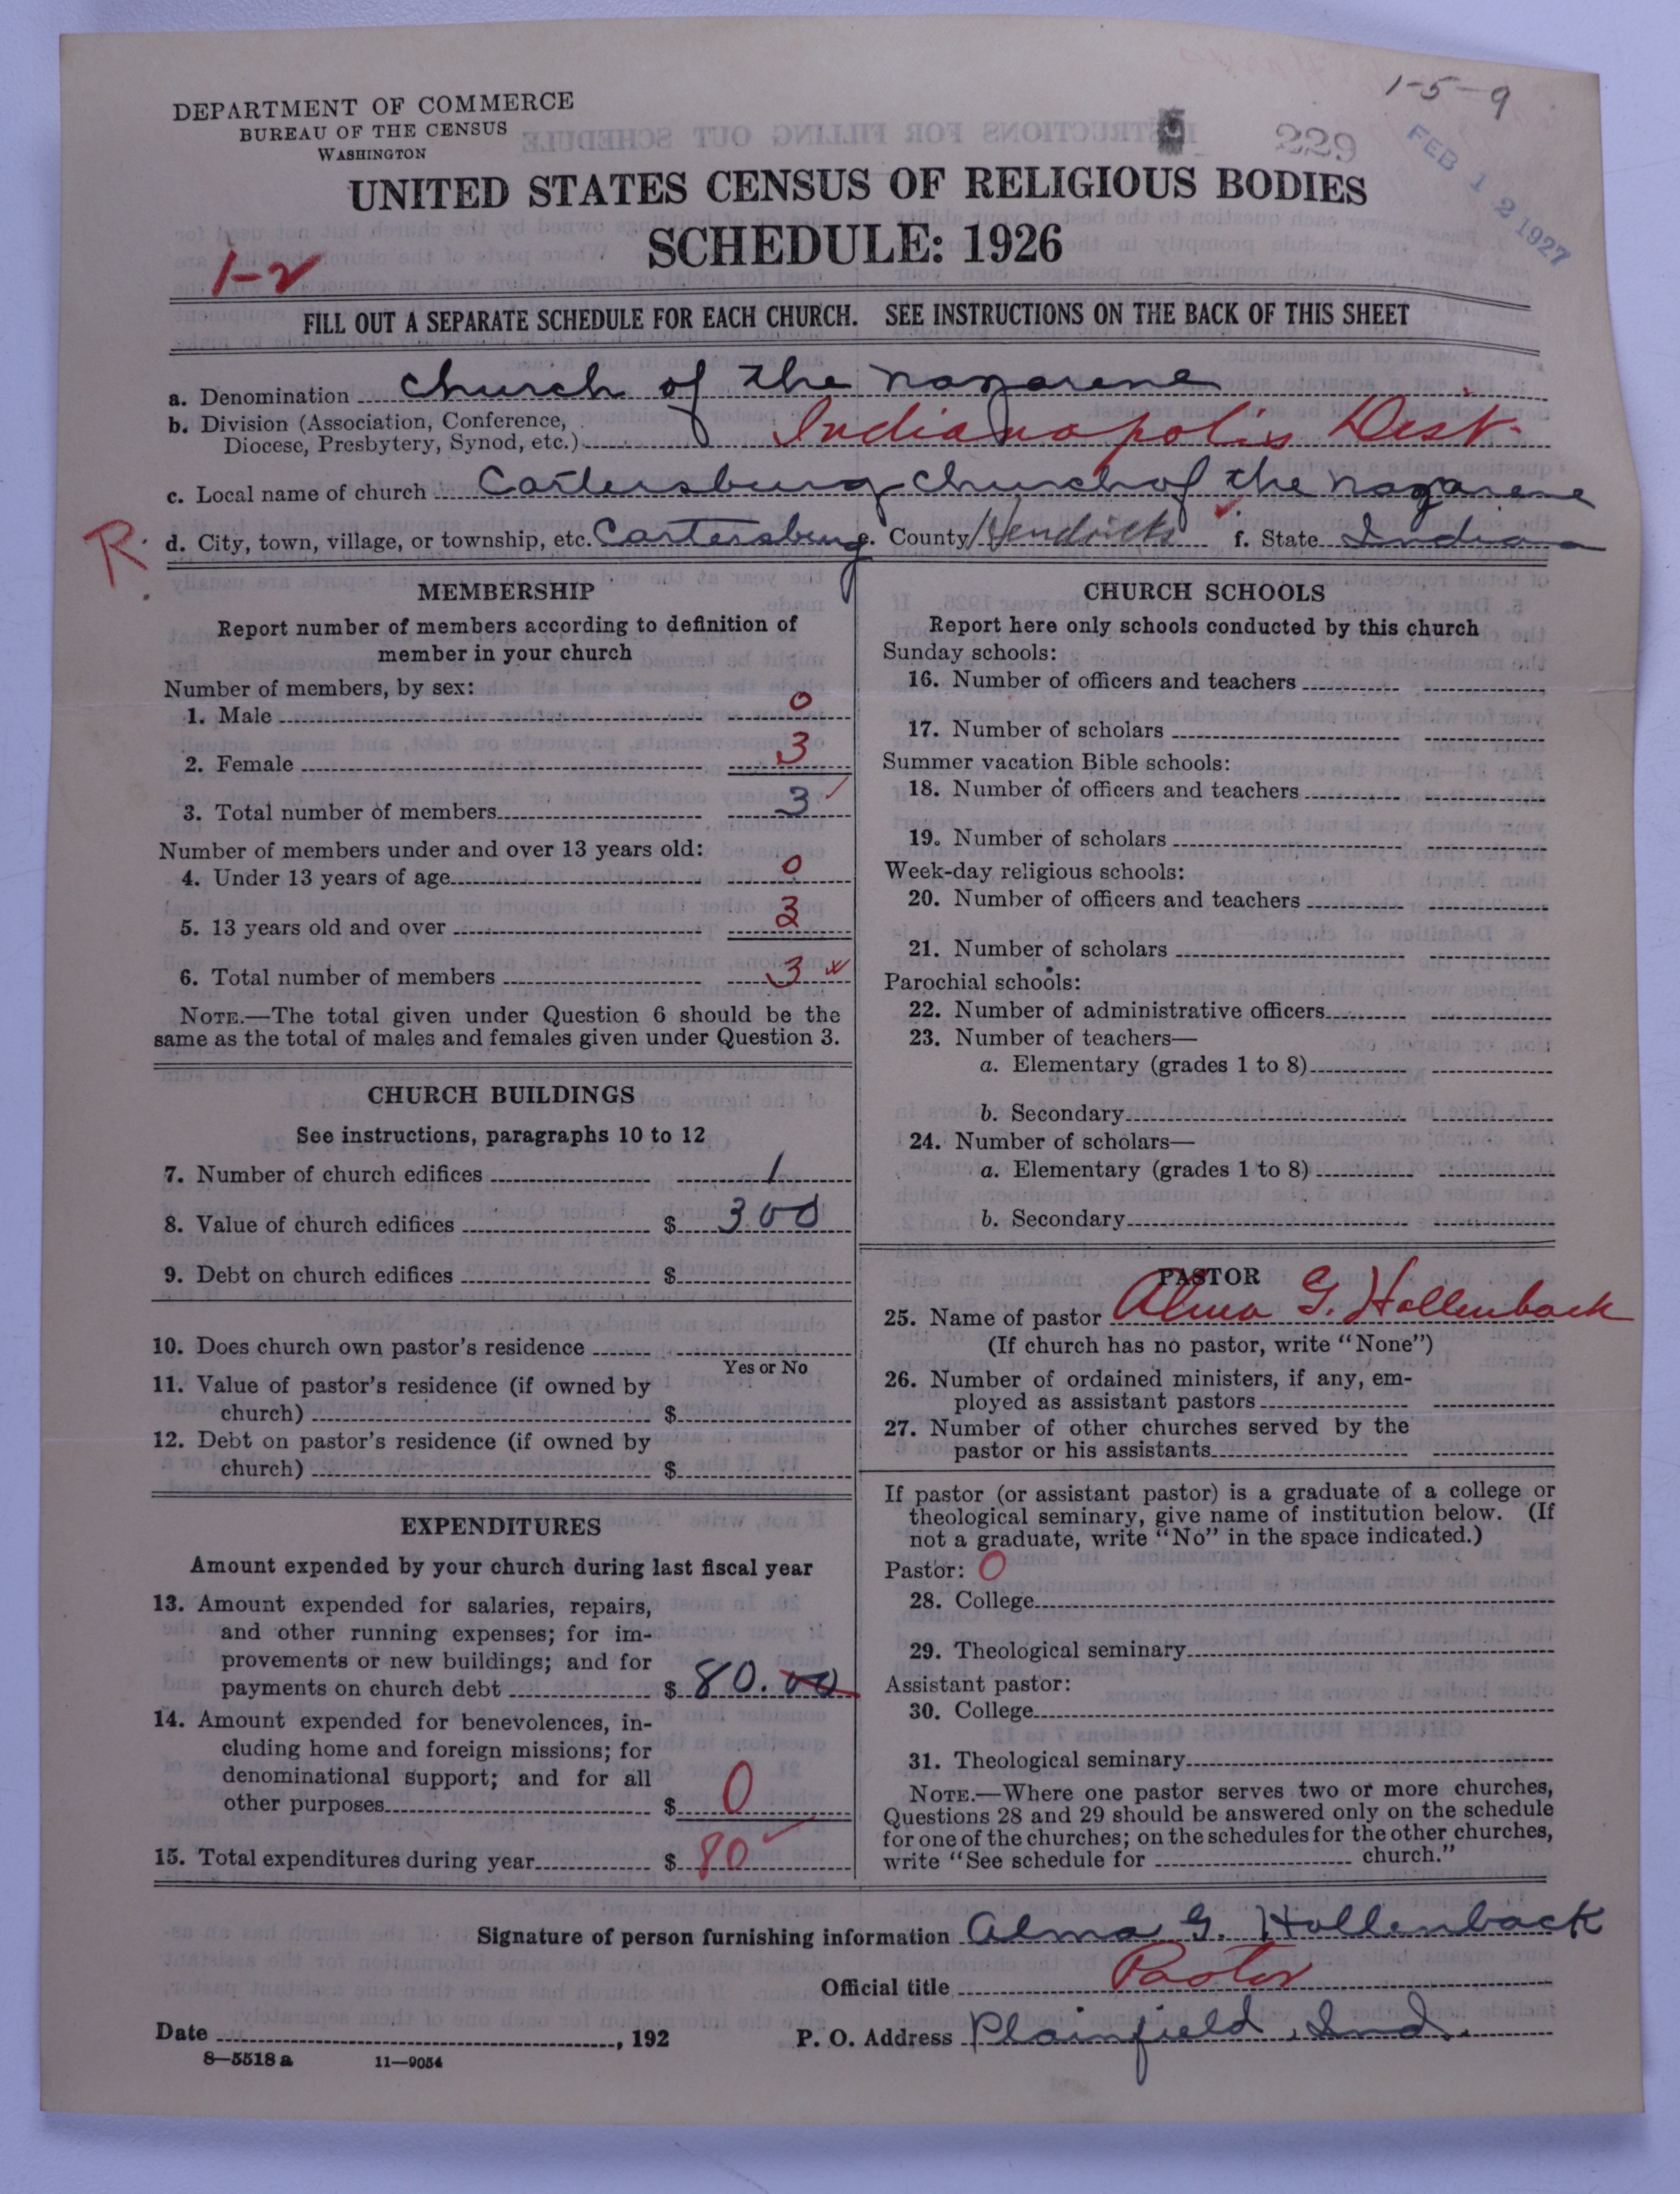 1-5-9
DEPARTMENT OF COMMERCE
BUREAU OF THE CENSUS
WASHINGTON
229
FEB 12 1927
UNITED STATES CENSUS OF RELIGIOUS BODIES
SCHEDULE: 1926
1-2
FILL OUT A SEPARATE SCHEDULE FOR EACH CHURCH. SEE INSTRUCTIONS ON THE BACK OF THIS SHEET
a. Denomination church of the nazarene
b. Division (Association, Conference,
Diocese, Presbytery, Synod, etc.) Indianapolis Dist.
c. Local name of church Cartersburg church of the nazarene
R.
d. City, town, village, or township, etc. Cartersburg e. County Hendricks f. State Indiana
MEMBERSHIP
Report number of members according to definition of
member in your church
Number of members, by sex:
1. Male 0
2. Female 3
3. Total number of members 3
Number of members under and over 13 years old:
4. Under 13 years of age 0
5. 13 years old and over 3
6. Total number of members 3
NOTE.—The total given under Question 6 should be the
same as the total of males and females given under Question 3.
CHURCH BUILDINGS
See instructions, paragraphs 10 to 12
7. Number of church edifices 1
8. Value of church edifices $ 300
9. Debt on church edifices $
10. Does church own pastor's residence
Yes or No
11. Value of pastor's residence (if owned by
church) $
12. Debt on pastor's residence (if owned by
church) $
EXPENDITURES
Amount expended by your church during last fiscal year
13. Amount expended for salaries, repairs,
and other running expenses; for im-
provements or new buildings; and for
payments on church debt $ 80.00
14. Amount expended for benevolences, in-
cluding home and foreign missions; for
denominational support; and for all
other purposes $ 0
15. Total expenditures during year $ 80
CHURCH SCHOOLS
Report here only schools conducted by this church
Sunday schools:
16. Number of officers and teachers
17. Number of scholars
Summer vacation Bible schools:
18. Number of officers and teachers
19. Number of scholars
Week-day religious schools:
20. Number of officers and teachers
21. Number of scholars
Parochial schools:
22. Number of administrative officers
23. Number of teachers—
a. Elementary (grades 1 to 8)
b. Secondary
24. Number of scholars—
a. Elementary (grades 1 to 8)
b. Secondary
PASTOR
25. Name of pastor Alma G. Hollenback
(If church has no pastor, write "None")
26. Number of ordained ministers, if any, em-
ployed as assistant pastors
27. Number of other churches served by the
pastor or his assistants
If pastor (or assistant pastor) is a graduate of a college or
theological seminary, give name of institution below. (If
not a graduate, write "No" in the space indicated.)
Pastor: 0
28. College
29. Theological seminary
Assistant pastor:
30. College
31. Theological seminary
NOTE.—Where one pastor serves two or more churches,
Questions 28 and 29 should be answered only on the schedule
for one of the churches; on the schedules for the other churches,
write "See schedule for church."
Signature of person furnishing information Alma G. Hollenback
Official title Pastor
Date , 192
P. O. Address Plainfield, Ind.
8—5518a 11—9054